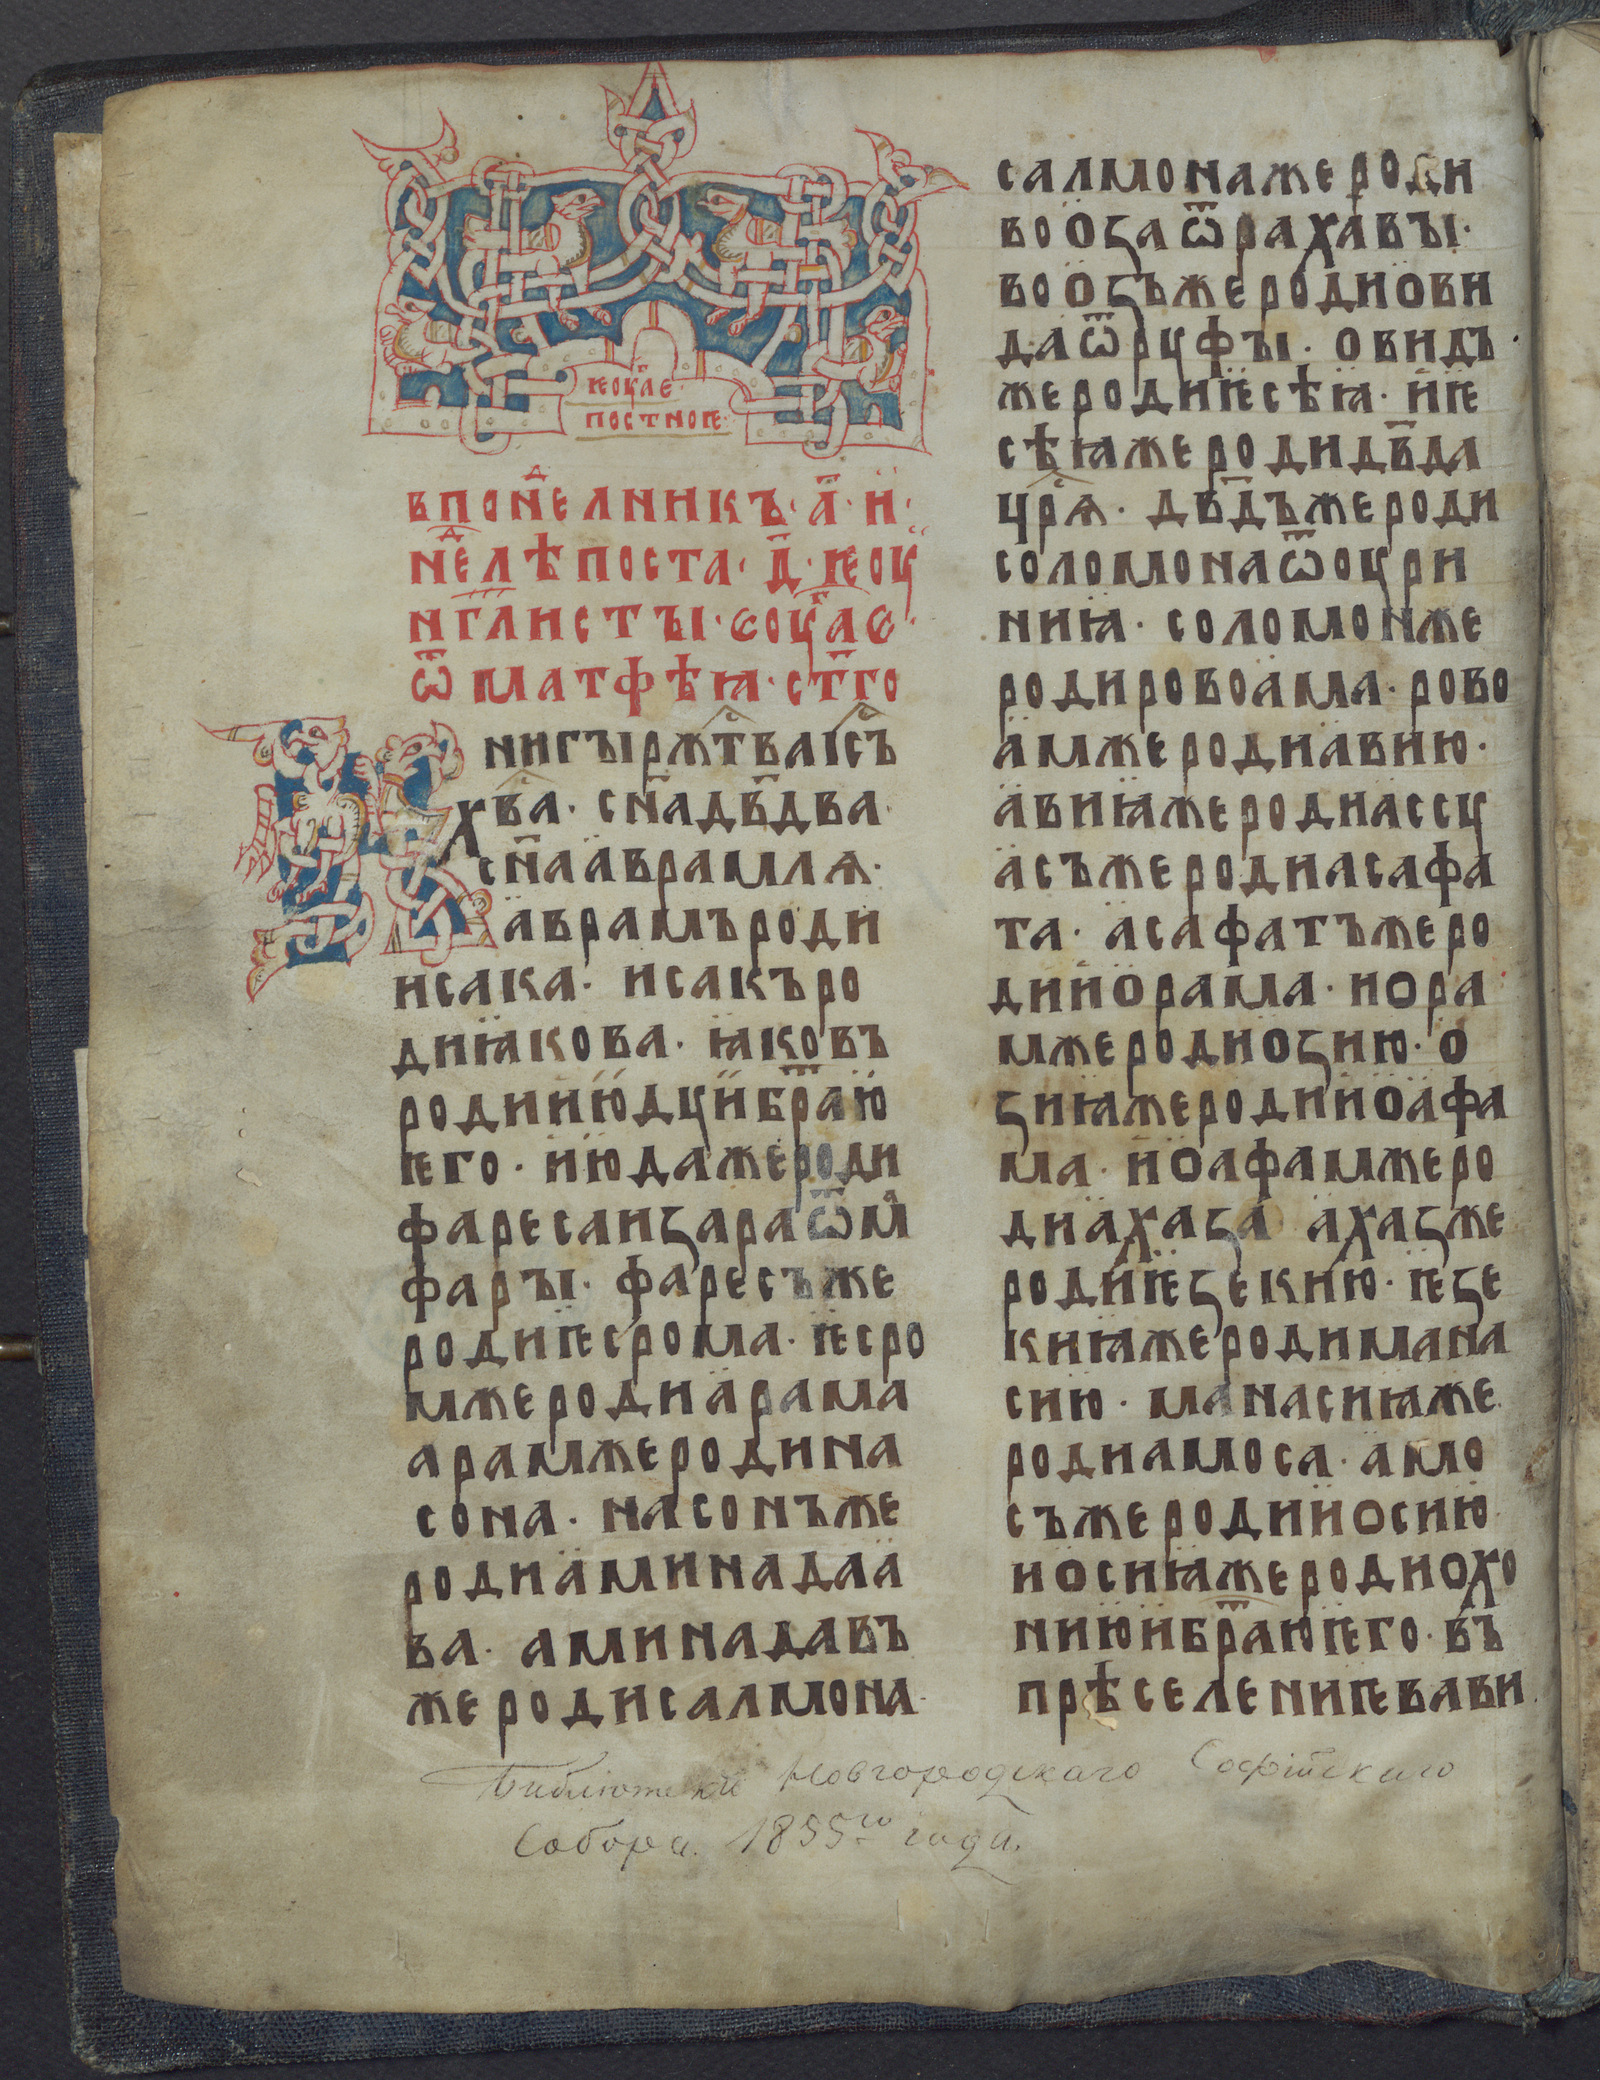 ѥѹⷢ҇лⷢ҇е
постноѥ
впонⷣелникъ· а҃· и҃·
нⷣелѣ поста· д҃· ѥоу
нг҃листъı· єоуⷢ҇ає·
ѿ матфѣꙗ· ст҃го
книгъı рожⷭ҇тва іⷭ҇съ
хⷭ҇ва· сн҃а дв҃два·
сн҃а аврамлѧ·
аврамъ роди
исака· исакъ ро
ди ꙗкова· ꙗковъ
роди июду и бр҃аю
ѥго· июда же роди
фареса и ꙁара ѿ ѳⷨа
фаръı· фаресъ же
роди ѥсрома· ѥсро
мже роди арама
арамже роди на
сона· насонъже
роди аминадаа
ва· аминадавъ
же роди салмона·
салмона же роди
вооꙁа ѿ рахавъı·
вооꙁъже роди ови
да ѿ руфъı· овидъ
же роди ѥсѣꙗ· и ѥ
сѣꙗ же роди дв҃да
црⷭ҇ѧ· дв҃дъже роди
соломона ѿ оури
ниꙗ· соломонже
роди ровоама· рово
амже роди авию·
авиꙗже роди ассу
асъже роди асафа
та· асафатъже ро
ди иорама· иора
мже роди оꙁию· о
ꙁиꙗже роди иоафа
ма· иоафамже ро
ди ахаꙁа ахаꙁже
роди ѥꙁекию· ѥꙁе
киꙗже роди мана
сию· манасиꙗже
роди амоса· амо
съже роди иосию
иосиꙗже роди охо
нию и бр҃аю ѥго· въ
прѣселениѥ вави
Библіотеки Новгородскаго Софійскаго
Собора. 1855го года.